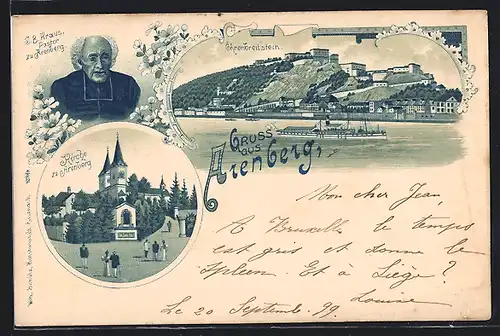 J. B. Kraus,
Pastor
zu Arenberg.
Ehrenbreitstein.
Gruss
aus
Arenberg,
Kirche
zu Arenberg
Mon cher Jean,
A Bruxelles le temps
est gris et donne le
Spleen. Et à Liège?
Louise
Le 20 Septembre 99